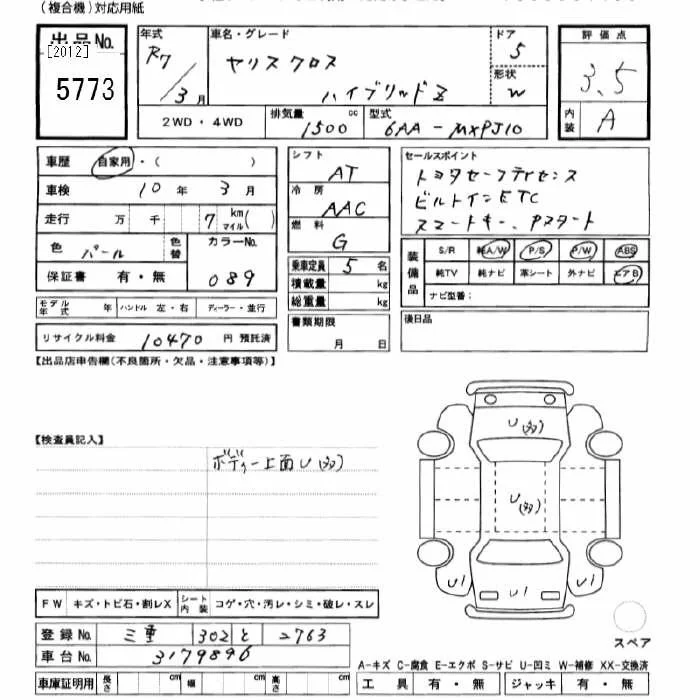 (複合機)対応用紙
出品No.
[2012]
5773
年式
R7/3月
車名・グレード
ヤリスクロス
ハイブリッドZ
ドア
5
形状
W
評価点
3.5
内装
A
2WD・4WD
排気量
1500
cc
型式
6AA-MXPJ10
車歴
自家用・( )
車検
10年3月
走行
万 千 7 km マイル( )
色
パール
色替
カラーNo.
089
保証書 有・無
モデル年式 年
ハンドル 左・右
ディーラー・並行
リサイクル料金 10470 円 預託済
シフト
AT
冷房
AAC
燃料
G
乗車定員 5 名
積載量 kg
総重量 kg
書類期限
月 日
セールスポイント
トヨタセーフティセンス
ビルトインETC
スマートキー、Pスタート
装備品
S/R 純A/W P/S P/W ABS
純TV 純ナビ 革シート 外ナビ エアB
ナビ型番:
後日品
【出品店申告欄(不良箇所・欠品・注意事項等)】
【検査員記入】
ボディー上面U(多)
U(多)
U(多)
U1
U1
U1
スペア
FW キズ・トビ石・割レX
シート内装 コゲ・穴・汚レ・シミ・破レ・スレ
登録No. 三重 302 と 2763
車台No. 3179896
車庫証明用 長さ cm 幅 cm 高さ cm
A-キズ C-腐食 E-エクボ S-サビ U-凹ミ W-補修 XX-交換済
工具 有・無 ジャッキ 有・無